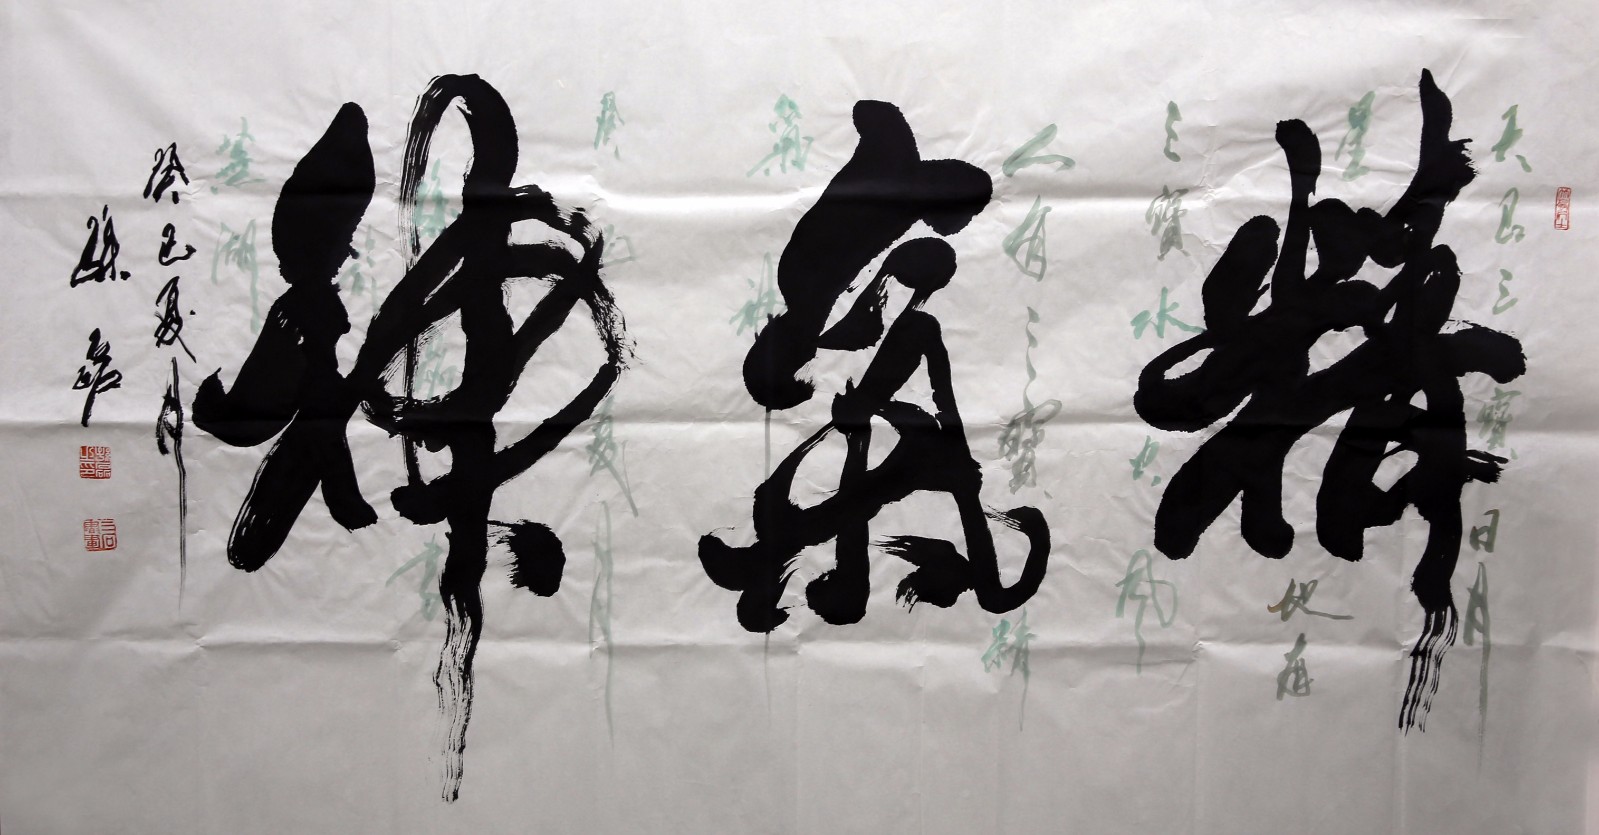 精氣神
天有三寶日月
星地有
三寶水火風
人有三寶精
氣神
癸巳夏月
書
蕪湖
癸巳夏月